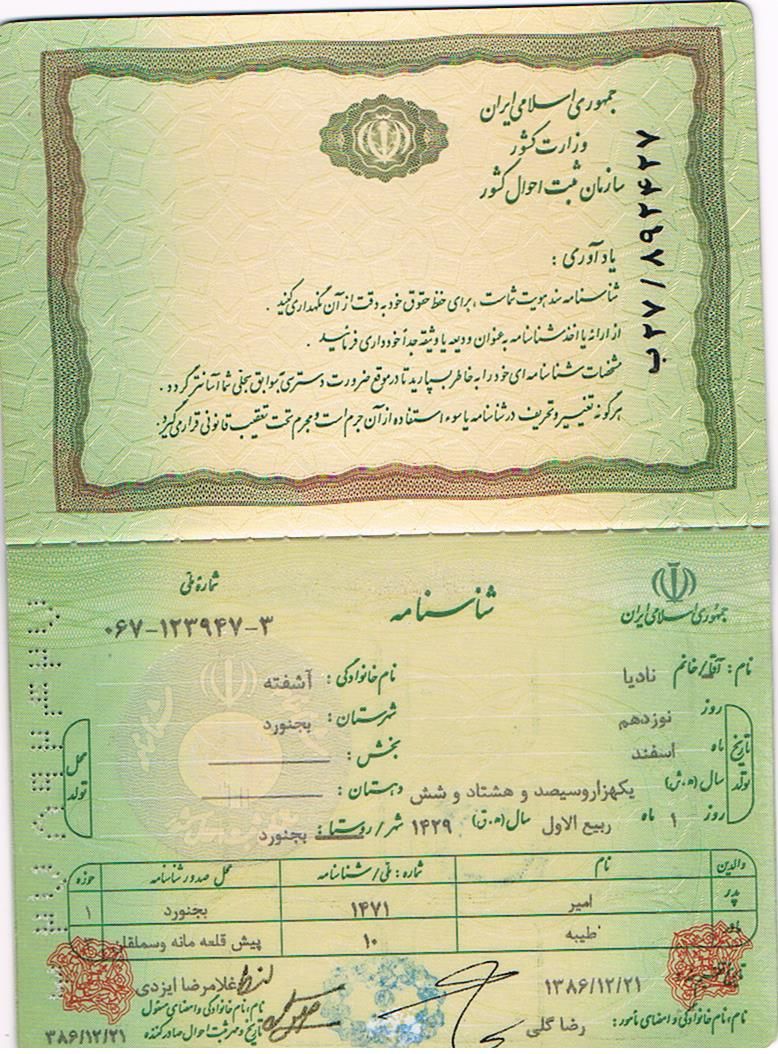 جمهوری اسلامی ایران
وزارت کشور
سازمان ثبت احوال کشور
ب ۲۷ / ۸۹۲۴۲۷
یادآوری :
شناسنامه سند هویت شماست ، برای حفظ حقوق خود به دقت از آن نگهداری کنید .
از ارائه یا اخذ شناسنامه به عنوان ودیعه یا وثیقه جداً خودداری فرمائید .
مشخصات شناسنامه ای خود را به خاطر بسپارید تا در موقع ضرورت دسترسی بسوابق سجلی شما آسانتر گردد .
هرگونه تغییر و تحریف در شناسنامه یا سوء استفاده از آن جرم است و مجرم تحت تعقیب قانونی قرار می گیرد .
جمهوری اسلامی ایران
شناسنامه
شماره ملی
۰۶۷-۱۲۳۹۴۷-۳
نام : آقا/خانم نادیا نام خانوادگی : آشفته
تاریخ تولد
روز نوزدهم
ماه اسفند
سال (ه.ش) یکهزاروسیصد و هشتاد و شش
روز ۱ ماه ربیع الاول سال (ه.ق) ۱۴۲۹
محل تولد
شهرستان : بجنورد
بخش :
دهستان :
شهر/روستا : بجنورد
والدین نام شماره : ملی/شناسنامه محل صدور شناسنامه حوزه
پدر امیر ۱۴۷۱ بجنورد ۱
مادر طیبه ۱۰ پیش قلعه مانه وسملقان
۱۳۸۶/۱۲/۲۱
نام، نام خانوادگی و امضای مأمور : رضا گلی
غلامرضا ایزدی
نام، نام خانوادگی و امضای مسئول
تاریخ و مهر ثبت احوال صادرکننده
۳۸۶/۱۲/۲۱